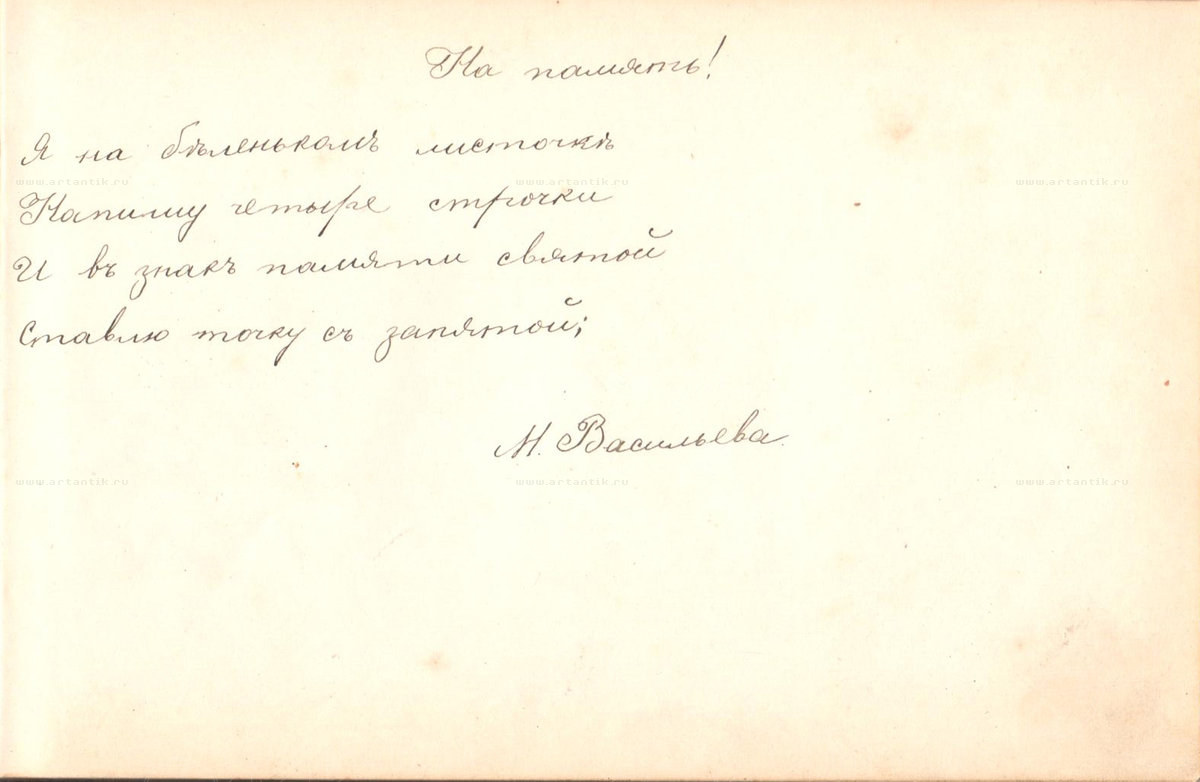 На память!
Я на бѣленькомъ листочкѣ
www.artantik.ru www.artantik.ru www.artantik.ru
Напишу четыре строчки
И въ знакъ памяти святой
Ставлю точку съ запятой;
М. Васильева.
www.artantik.ru www.artantik.ru www.artantik.ru